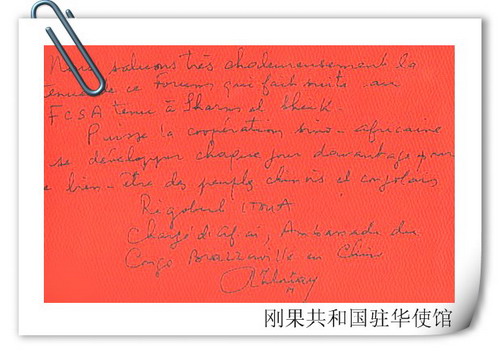 Nous saluons très chaleureusement la
tenue de ce Forum qui fait suite au
FCSA tenu à Sharm el Sheik.
Puisse la coopération sino-africaine
se développer chaque jour davantage pour
le bien-être des peuples chinois et congolais
Rigobert ITOUA
Chargé d'af ai, Ambassade du
Congo Brazzaville en Chine
刚果共和国驻华使馆